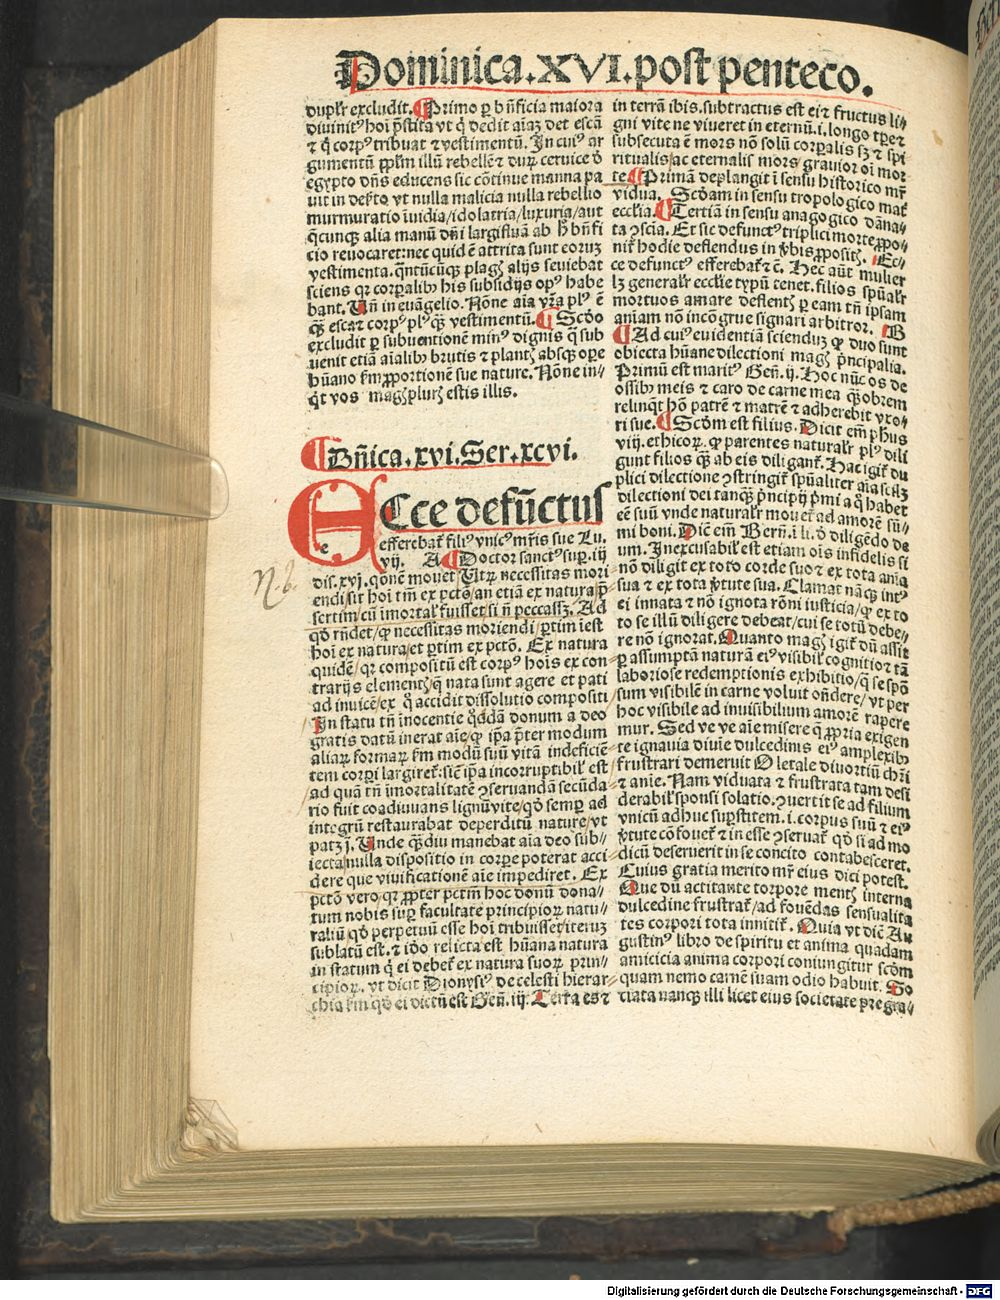 Dominica.XVI.post penteco.
duplr excludit. Primo ꝑ bñficia maiora
diuinitꝰ hoi p̄stita vt q̄ dedit aīaꝫ det escā
⁊ q̇ corpꝰ tribuat ⁊ vestimentū. In cuiꝰ ar
gumentū pplm illū rebellē ⁊ dur̄ ceruice d̄
egypto dn̄s educens sic cōtinue manna pa
uit in dep̄to vt nulla malicia nulla rebellio
murmuratio īuidia/idolatria/luxuria/aut
q̄cunqꝫ alia manū dn̄i largifluā ab hͦ bn̄fi
cio reuocaret: nec quid ē attrita sunt eoruꝫ
vestimenta. q̄ntūcūqꝫ plagꝭ alijs seuiebat
sciens qꝛ corꝑalibꝰ his subsidijs opꝰ habe
bant. Vn̄ in euāgelio. Nōne aīa vr̄a plꝰ ē
qꝫ̄ esca ⁊ corpꝰ plꝰ qꝫ̄ vestimentū. Scd̄o
excludit ꝑ subuentionē minꝰ dignis q̄ sub
uenit etiā aīalibꝰ brutis ⁊ plantꝭ absqꝫ oꝑe
hūano fm ꝓportionē sue nature. Nōne in⸗
q̇t vos magꝭ plurꝭ estis illis.
Dn̄ica.xvi.Ser.xcvi.
ECce defūctus
e
efferebat̄ filiꝰ vnicꝰ mr̄is sue Lu.
vij. A Doctor sanctꝰ suꝑ.iij
N. b.
dis.xvj.qōnē mouet Vtꝝ necessitas mori
endi sit hoi tm̄ ex pctō/an etiā ex natura p̄
sertim/cū īmortal̄ fuisset si n̄ peccassꝫ. Ad
qd̄ rn̄det/ꝙ necessitas moriendi ꝑtim īest
hoi ex natura/et ꝑtim ex pctō. Ex natura
quidē/qꝛ compositū est corpꝰ hoīs ex con
trarijs elementꝭ/q̄ nata sunt agere et pati
ad inuicē/ex q̄ accidit dissolutio compositi
In statu tn̄ inocentie q̄ddā donum a deo
gratis datū inerat aīe/ꝙ ip̄a p̄ter modum
aliaꝝ formaꝝ fm modū suū vitā indeficiē⸗
tem corꝑi largiret̄: sic̄ ip̄a incorruptibil̄ est
ad quā tn̄ imortalitatē ꝯseruandā secūda
rio fuit coadiuuans lignū vite/qd̄ semꝑ ad
integrū restaurabat deperditū nature/vt
patꝫ j. Vnde qꝫ̄diu manebat aīa deo sub⸗
iecta/nulla dispositio in corꝑe poterat acci
dere que viuificationē aīe impediret. Ex
pctō vero/qꝛ ꝓpter pctm̄ hoc donū dona⸗
tum nobis suꝑ facultate principioꝝ natu⸗
raliū qd̄ perpetuū esse hoi tribuisset iteruꝫ
sublatū est. ⁊ iō relicta est hūana natura
in statum q̇ ei debet̄ ex natura suoꝝ prin⸗
cipioꝝ. vt dicit Dionysiꝰ de celesti hierar⸗
chia fm qd̄ ei dictū est Gen̄. iij. Terra es ⁊
in terrā ibis. subtractus est ei ⁊ fructus li⸗
gni vite ne viueret in eternū.i. longo tꝑe ⁊
subsecuta ē mors nō solū corꝑalis sꝫ ⁊ spi
ritualis/ac eternalis mors grauior oī mor
te Primā deplangit ī sensu historico mr̄
vidua. Scd̄am in sensu tropologico mat̄
eccl̄ia. Tertiā in sensu anagogico dāna⸗
ta ꝯscia. Et sic defunctꝰ triplici morte ꝓpo⸗
nit̄ hodie deflendus in v̄bis ꝓpositꝭ. Ec⸗
ce defunctꝰ efferebat̄ ⁊c̄. Hec aūt mulier
lꝫ generalr̄ eccl̄ie typū tenet. filios spūalr̄
mortuos amare deflentꝭ ꝑ eam tn̄ ipsam
aīam nō incōgrue signari arbitror. B
Ad cuiꝰ euidentiā sciendū ꝙ duo sunt
obiecta hūane dilectioni magꝭ p̄ncipalia.
Primū est maritꝰ Gen̄. ij. Hoc nūc os de
ossibꝰ meis ⁊ caro de carne mea qꝫ̄obrem
relinq̇t hō patrē ⁊ matrē ⁊ adherebit vxo⸗
ri sue. Scd̄m est filius. Dicit em̄ ph̄us
viij. ethicoꝝ. ꝙ parentes naturalr̄ plꝰ dili
gunt filios qꝫ̄ ab eis diligant̄. Hac igit̄ du
plici dilectione ꝯstringit̄ spūaliter aīa scꝫ
dilectioni dei tanqꝫ̄ p̄ncipij p̄mi a q̄ habet
eē suū vnde naturalr̄ mouet̄ ad amorē sū⸗
mi boni. Dic̄ em̄ Bern̄. i li. d̄ diligēdo de
um. Inexcusabil̄ est etiam oīs infidelis si
nō diligit ex toto corde suo ⁊ ex tota aīa
sua ⁊ ex tota v̄tute sua. Clamat nāqꝫ intꝰ
ei innata ⁊ nō ignota rōni iusticia/ꝙ ex to
to se illū diligere debeat/cui se totū debe⸗
re nō ignorat. Quanto magꝭ igit̄ dū assit
ꝑ assumptā naturā eiꝰ visibil̄ cognitio ⁊ tā
laboriose redemptionis exhibitio/q̄ se ipō
sum visibilē in carne voluit on̄dere/vt per
hoc visibile ad inuisibilium amorē rapere
mur. Sed ve ve aīe misere q̄ ꝓpria exigen
te ignauia diuīe dulcedinis eiꝰ amplexibꝰ
frustrari demeruit O letale diuortiū chr̄i
⁊ anīe. Nam viduata ⁊ frustrata tam desi
derabil̄ sponsi solatio.ꝯuertit se ad filium
vnicū adhuc suꝑstitem.i.corpus suū ⁊ eiꝰ
v̄tute cōfouet̄ ⁊ in esse ꝯseruat̄ qd̄ si ad mo
dicū deseruerit in se concito contabesceret.
Cuius gratia merito mr̄ eius dici potest.
Que dū actitante torpore mentꝭ interna
dulcedine frustrat̄/ad fouēdas sensualita
tes corpori tota innitit̄. Quia vt dic̄ Au
gustinꝰ libro de spiritu et anima quadam
amicicia anima corpori coniungitur scd̄m
quam nemo carnē suam odio habuit. So
ciata nanqꝫ illi licet eius societate pregra⸗
Digitalisierung gefördert durch die Deutsche Forschungsgemeinschaft - DFG